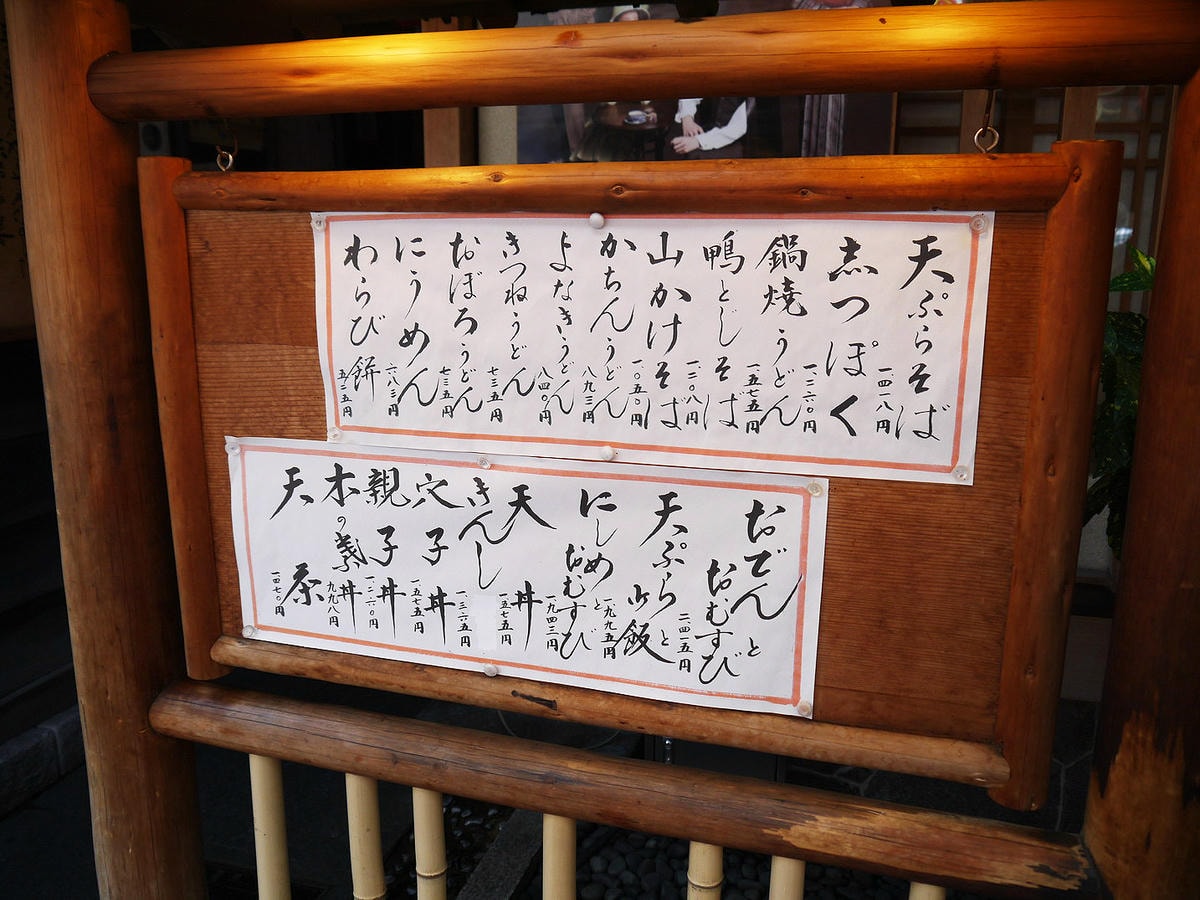 天ぷらそば
一四一八円
志つぽく
一二六〇円
鍋焼うどん
一五七五円
鴨とじそば
一二〇八円
山かけそば
一〇五〇円
かちんうどん
八九三円
よなきうどん
八四〇円
きつねうどん
七三五円
おぼろうどん
七三五円
にうめん
六八三円
わらび餅
五二五円
おでんと
おむすび
二、四一五円
天ぷらと
御飯
一、九九五円
にしめと
おむすび
一、九四三円
天丼
一五七五円
きんし
一、三六五円
穴子丼
一五七五円
親子丼
一二六〇円
木の葉丼
九九八円
天茶
一四七〇円